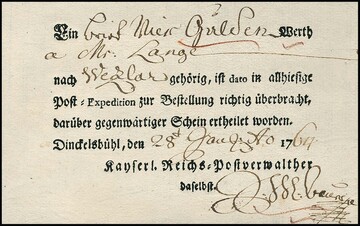 Ein brief Vier Gulden Werth
a Mr. Lange
nach Wezlar gehörig, ist dato in allhiesige
Post-Expedition zur Bestellung richtig überbracht,
darüber gegenwärtiger Schein ertheilet worden.
Dinckelsbühl, den 28t 176
Kayserl. Reichs-Postverwalther
daselbst.